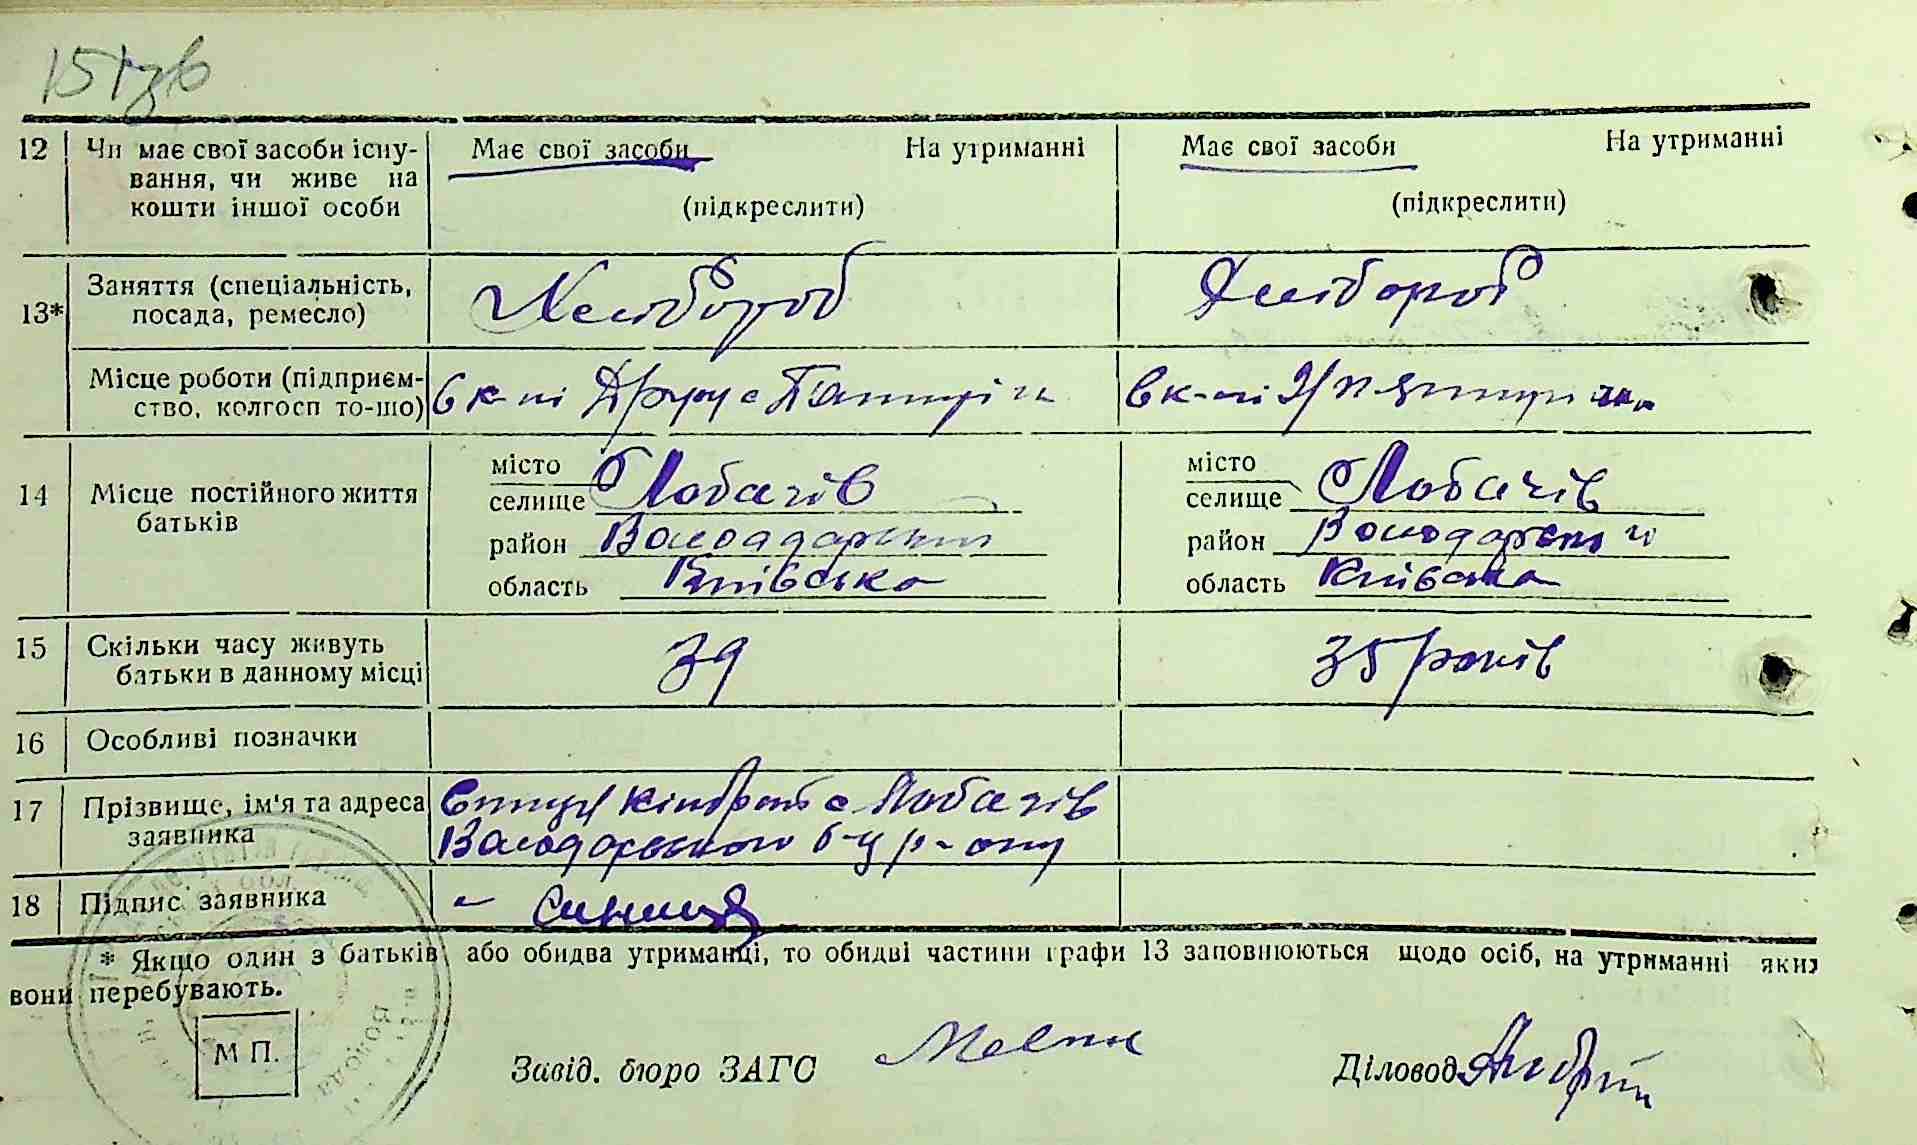 12 Чи має свої засоби існу- Має свої засоби На утриманні Має свої засоби На утриманні
вання, чи живе на
кошти іншої особи (підкреслити) (підкреслити)
13* Заняття (спеціальність, Хлібороб Хлібороб
посада, ремесло)
Місце роботи (підприєм-
ство, колгосп то-що) в к-пі в к-пі
14 Місце постійного життя
батьків
місто с Лобачів місто с Лобачів
селище селище
район Володарський район Володарський
область Київська область Київська
15 Скільки часу живуть 39 35 років
батьки в данному місці
16 Особливі позначки
17 Прізвище, ім'я та адреса с Лобачів
заявника Володарського р-ону
18 Підпис заявника
* Якщо один з батьків або обидва утриманці, то обидві частини графи 13 заповнюються щодо осіб, на утриманні яких
вони перебувають.
М П.
Завід. бюро ЗАГС Діловод